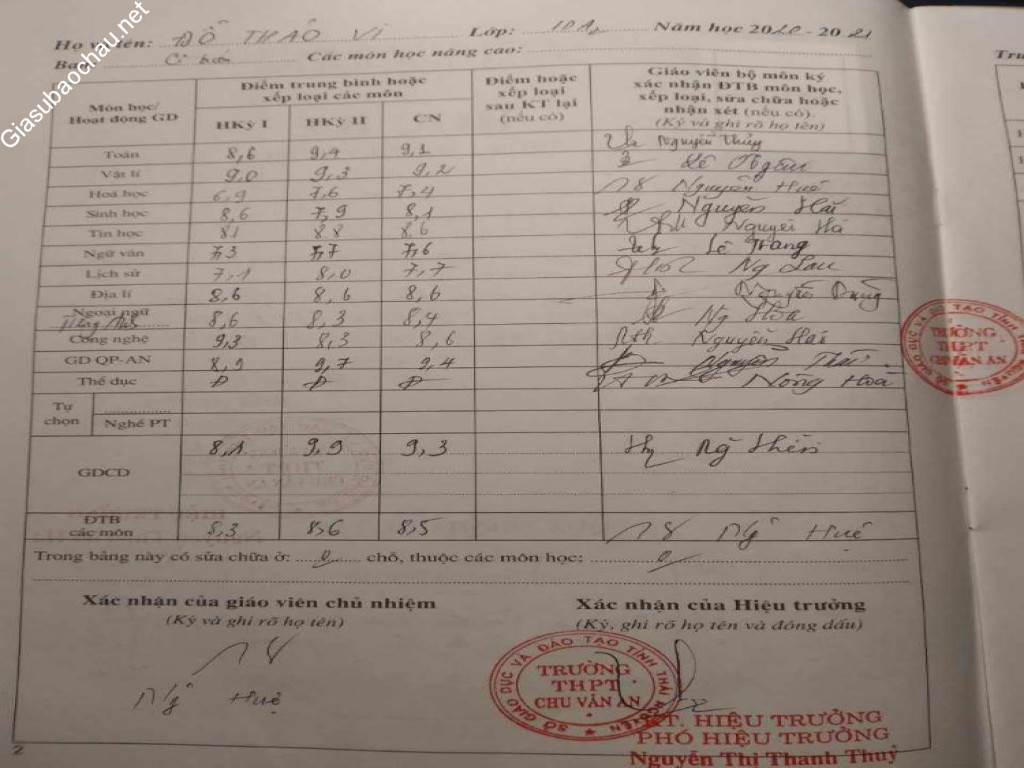 Giasubaochau.net
Họ và tên: ĐỖ THẢO VI Lớp: 10A2 Năm học 2020 - 2021
Ban: Cơ bản Các môn học nâng cao:
Môn học/ Hoạt động GD
Điểm trung bình hoặc xếp loại các môn
HKỳ I HKỳ II CN
Điểm hoặc xếp loại sau KT lại (nếu có)
Giáo viên bộ môn ký xác nhận ĐTB môn học, xếp loại, sửa chữa hoặc nhận xét (nếu có).
(Ký và ghi rõ họ tên)
Toán 8,6 9,4 9,1 Nguyễn Thủy
Vật lí 9,0 9,3 9,2 Lê Ngân
Hoá học 6,9 7,6 7,4 Nguyễn Huê
Sinh học 8,6 7,9 8,1 Nguyễn Hải
Tin học 8,1 8,8 8,6 Nguyễn Hà
Ngữ văn 7,3 7,7 7,6 Lê Trang
Lịch sử 7,1 8,0 7,7 Ng
Địa lí 8,6 8,6 8,6 Nguyễn Dung
Ngoại ngữ Tiếng Anh 8,6 8,3 8,4 Ng Hoa
Công nghệ 9,3 8,3 8,6 Nguyễn Hải
GD QP-AN 8,9 9,7 9,4 Nguyễn
Thể dục Đ Đ Đ Nông Hoà
Tự chọn
Nghề PT
GDCD 8,1 9,9 9,3 Ng
ĐTB các môn 8,3 8,6 8,5 Ng Huê
Trong bảng này có sửa chữa ở: 0 chỗ, thuộc các môn học: 0
Xác nhận của giáo viên chủ nhiệm
(Ký và ghi rõ họ tên)
Ng Huê
Xác nhận của Hiệu trưởng
(Ký, ghi rõ họ tên và đóng dấu)
SỞ GIÁO DỤC VÀ ĐÀO TẠO TỈNH THÁI NGUYÊN
TRƯỜNG
THPT
CHU VĂN AN
KT. HIỆU TRƯỞNG
PHÓ HIỆU TRƯỞNG
Nguyễn Thị Thanh Thuỷ
2
TRƯỜNG
THPT
CHU VĂN AN